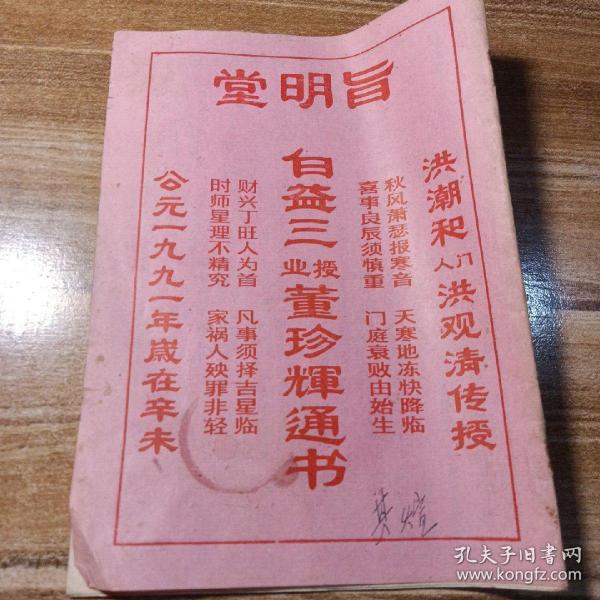 旨明堂
洪潮和门人洪观清传授
秋风萧瑟报寒音 天寒地冻快降临
喜事良辰须慎重 门庭衰败由始生
白益三授业董珍輝通书
财兴丁旺人为首 凡事须择吉星临
时师星理不精究 家祸人殃罪非轻
公元一九九一年岁在辛未
孔夫子旧书网
www.kongfz.com